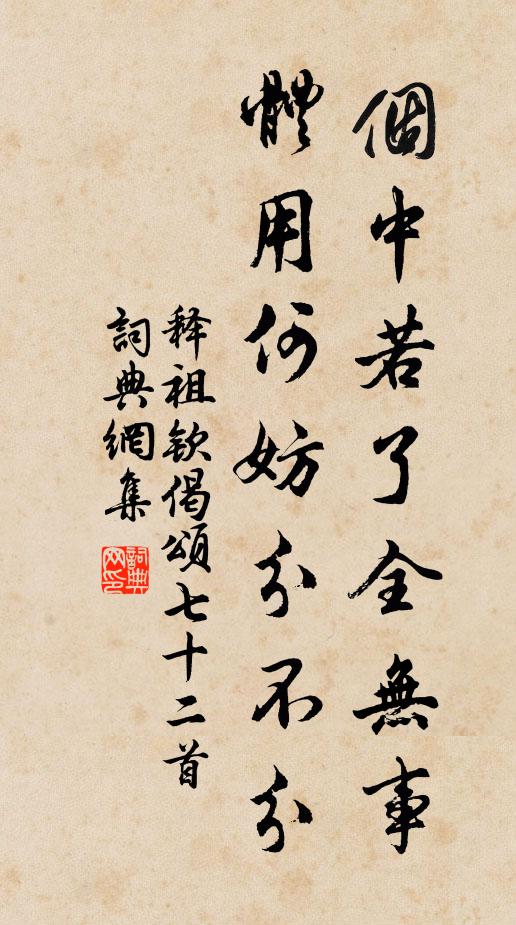 個中若了全無事
體用何妨分不分
释祖欽偈頌七十二首
詞典網集
詞典网印